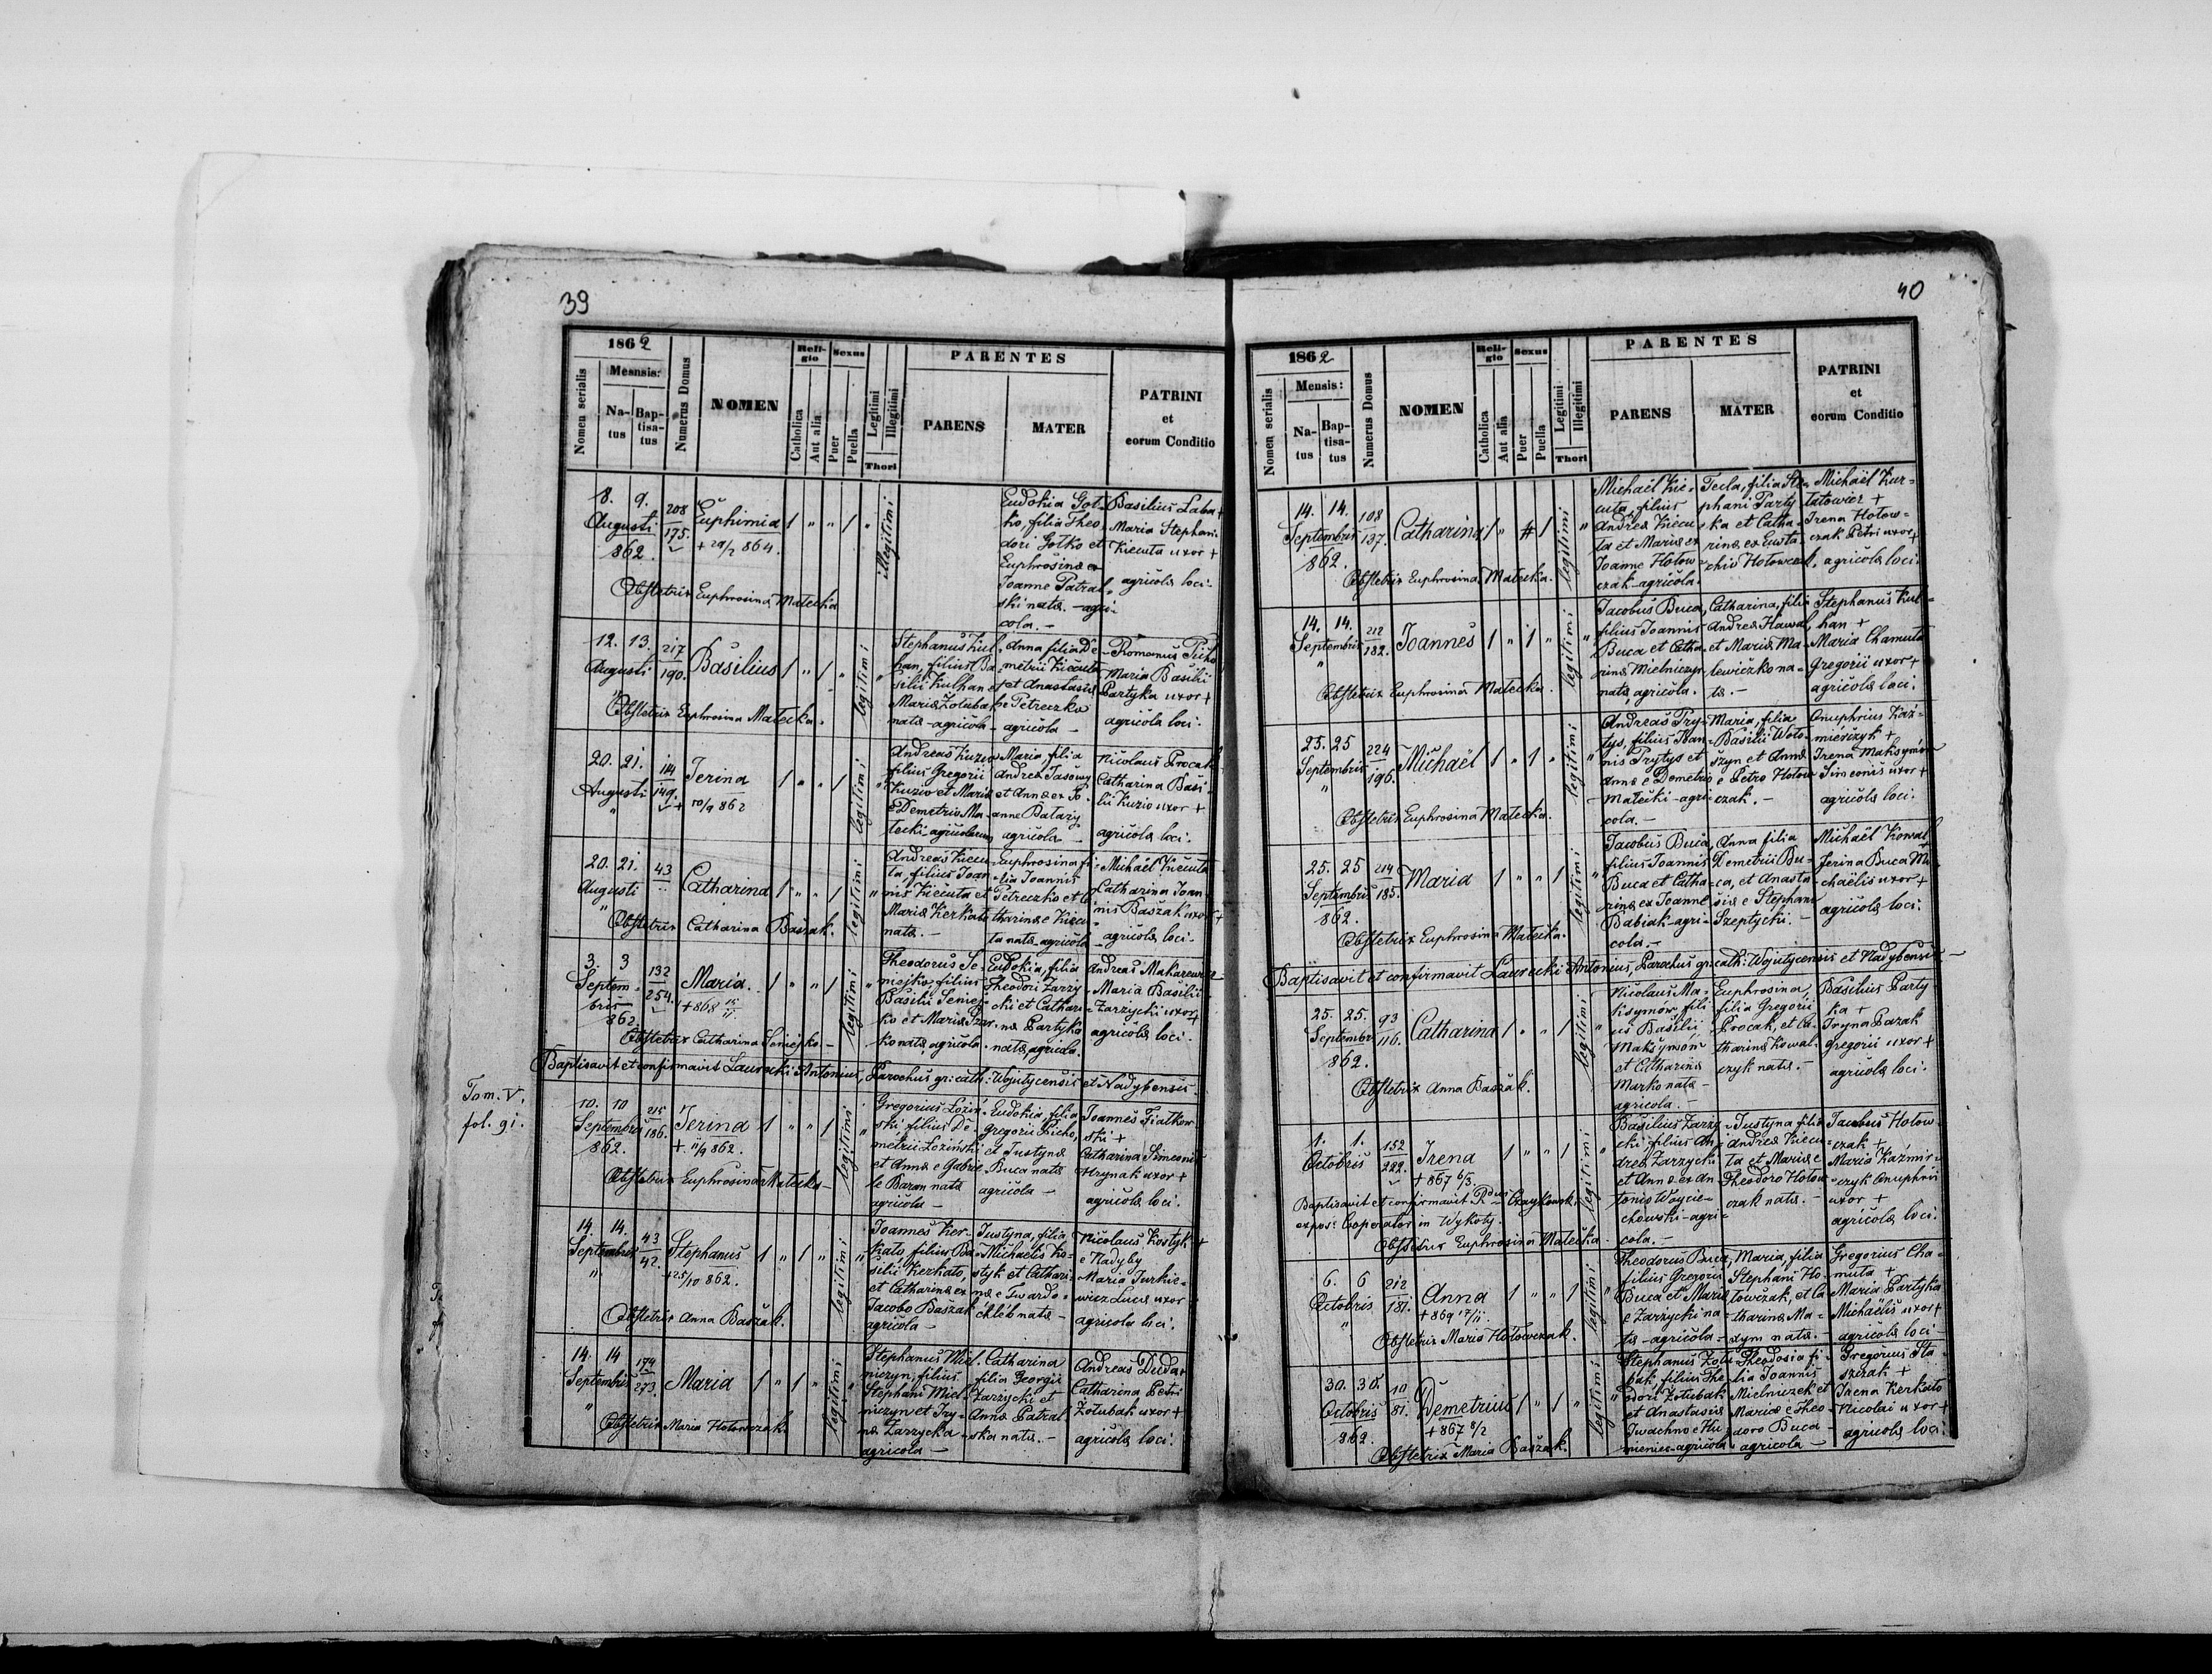 39
1862
Nomen serialis
Mesnsis:
Na-
tus
Bap-
tisa-
tus
Numerus Domus
NOMEN
Reli-
gio
Catholica
Aut alia
Sexus
Puer
Puella
Legitimi
Illegitimi
Thori
PARENTES
PARENS
MATER
PATRINI
et
eorum Conditio
8. 9.
Augusti
862.
208
175.
Euphimia
864.
illegitimi
Eudokia Got-
ko, filia Theo
dori Gotko et
Euphrosinæ ex
Joanne Patral-
ski nata. - agri-
cola. -
Basilius Laba +
Maria Stephani
Kiecuta uxor +
agricolæ loci.
Obstetrix Euphrosina Matecka
12. 13.
Augusti
"
217
190.
Basilius
legitimi
Stephanus Kul-
han, filius Ba-
silii Kulhan et
Mariæ Zotubak
nata - agricola
Anna filia De-
metrii Kiecuta
et Anastasiæ
e Petreczko
agricola -
Romanus Picho
Maria Basilii
Partyka uxor +
agricolæ loci.
Obstetrix Euphrosina Matecka.
20. 21.
Augusti
"
149.
Jerina
+ 10/9 862
legitimi
Andreas Kuzio
filius Gregorii
Kuzio et Mariæ
e Demetrio Ma-
tecki - agricolarum
Maria, filia
Andreæ Jasowy
et Annæ ex Jo-
anne Batazy
agricola -
Nicolaus Procak
Catharina Basi-
lii Kuzio uxor +
agricolæ loci.
20. 21.
Augusti
"
43
Catharina
legitimi
Andreas Kiecu-
ta, filius Joan-
nis Kiecuta et
Mariæ Kerkato
nata. -
Euphrosina fi-
lia Joannis
Petreczko et Ca-
tharinæ e Kiecu-
ta nata - agricola
Michaël Kiecuta
Catharina Joan-
nis Baszak uxor +
agricolæ loci.
Obstetrix Catharina Baszak.
3. 3
Septem-
bris
862
132
254.
Maria.
+ 868 15/11.
legitimi
Theodorus Se-
niejko, filius
Basilii Seniej-
ko et Mariæ Szar-
ko nata, agricola.
Eudokia, filia
Theodori Zarzy-
cki et Cathari-
næ Partyka
nata, agricola.
Andreas Makarewicz
Maria Basilii
Zarzycki uxor +
agricolæ loci.
Obstetrix Catharina Seniejko. -
Baptisavit et confirmavit Laurecki Antonius, Parochus gr: cath: Wojutycensis et Nadybensis.
Tom. V.
fol. 91.
10. 10
Septembris
862.
215
186.
Jerina
+ 11/9 862.
legitimi
Gregorius Łoziń-
ski filius De-
metrii Łoziński
et Annæ e Gabrie-
le Baran nata
agricola -
Eudokia, filia
Gregorii Picho,
et Justynæ
Buca nata
agricola -
Joannes Fiałkow-
ski +
Catharina Simeonis
Hrynak uxor +
agricolæ loci.
Obstetrix Euphrosina Matecka -
14. 14.
Septembris
"
43
42.
Stephanus
+ 25/10 862.
legitimi
Joannes Ker-
kato, filius Ba-
silii Kerkato,
et Catharinæ ex
Jacobo Baszak
agricola -
Justyna, filia
Michaelis Ko-
styk et Cathari-
næ e Twardo-
chleb nata -
Nicolaus Kostyk +
e Nadyby
Maria Jurkie-
wicz Lucæ uxor
agricola loci.
Obstetrix Anna Baszak.
14. 14
Septembris
"
174
273.
Maria
legitimi
Stephanus Miel-
niczyn, filius
Stephani Miel-
niczyn et Iry-
næ Zarzycka
agricola -
Catharina
filia Georgii
Zarzycki et
Annæ Patral-
ska nata. -
Andreas Duda +
Catharina Petri
Zotubak uxor +
agricolæ loci.
Obstetrix Maria Hołowczak.
40
1862
Nomen serialis
Mensis:
Na-
tus
Bap-
tisa-
tus
Numerus Domus
NOMEN
Reli-
gio
Catholica
Aut alia
Sexus
Puer
Puella
Legitimi
Illegitimi
Thori
PARENTES
PARENS
MATER
PATRINI
et
eorum Conditio
14. 14.
Septembris
862.
108
137.
Catharina
legitimi
Michaël Kie-
cuta, filius
Andreæ Kiecu-
ta et Mariæ ex
Joanne Hołow-
czak - agricola.
Tecla, filia Ste-
phani Party-
ka et Catha-
rinæ ex Eusta-
chio Hołowczak.
Michaël Kur-
tatowicz +
Irena Hołow-
czak Petri uxor +
agricolæ loci.
Obstetrix Euphrosina Matecka.
14. 14.
Septembris
"
212
182.
Joannes
legitimi
Jacobus Buca,
filius Joannis
Buca et Catha-
rinæ Mielniczyn
nata, agricola.
Catharina, filia
Andreæ Hawal,
et Mariæ Ma-
lewiczko na-
ta. -
Stephanus Kul-
han +
Maria Chamuta
Gregorii uxor +
agricolæ loci.
Obstetrix Euphrosina Matecka.
25. 25
Septembris
"
224
196.
Michaël
legitimi
Andreas Pry-
tys, filius Joan-
nis Prytys et
Annæ e Demetrio
Matecki - agri-
cola. -
Maria, filia
Basilii Woto-
szyn et Annæ
e Petro Hołow-
czak. -
Onuphrius Kaź-
mierczyk +
Irena Maksymów
Simeonis uxor +
agricolæ loci.
Obstetrix Euphrosina Matecka.
25. 25
Septembris
862.
214
185.
Maria
legitimi
Jacobus Buca,
filius Joannis
Buca et Catha-
rinæ ex Joanne
Babiak - agri-
cola. -
Anna filia
Demetrii Bu-
ca, et Anasta-
siæ e Stephano
Szeptycki. -
Michaël Kowal
Jerina Buca Mi-
chaëlis uxor +
agricolæ loci.
Obstetrix Euphrosina Matecka.
Baptisavit et confirmavit Laurecki Antonius, Parochus gr: cath: Wojutycensis et Nadybensis -
25. 25.
Septembr.
862.
93
116.
Catharina
legitimi
Nicolaus Ma-
ksymów, fili-
us Basilii
Maksymów
et Catharinæ
Marko nata -
agricola. -
Euphrosina,
filia Gregorii
Procak, et Ca-
tharinæ Kowal-
czyk nata. -
Basilius Party-
ka +
Iryna Pazak
Gregorii uxor +
agricolæ loci.
Obstetrix Anna Baszak.
1. 1.
Octobris
152
282.
Irena
+ 867 6/3.
legitimi
Basilius Zarzy-
cki, filius An-
dreæ Zarzycki
et Annæ ex An-
tonio Wojcie-
chowski - agri-
cola. -
Justyna filia
Andreæ Kiecu-
ta et Mariæ e
Theodoro Hołow-
czak nata. -
Jacobus Hołow-
czak +
Maria Kaźmir-
czyk Onuphrii
uxor +
agricolæ loci.
Baptisavit et confirmavit Czaykowski
expos: Cooperator in Wykoty.
Obstetrix Euphrosina Matecka.
6. 6
Octobris
"
212
181.
Anna
+ 869 17/11.
legitimi
Theodorus Buca,
filius Gregorii
Buca et Mariæ
e Zarzycki na-
ta - agricola -
Maria, filia
Stephani Ho-
łowczak, et Ca-
tharinæ Ma-
xym nata. -
Gregorius Cha-
muta +
Maria Partyka
Michaëlis uxor +
agricolæ loci -
Obstetrix Maria Hołowczak.
30. 30.
Octobris
862.
10
81.
Demetrius
+ 867 8/2
legitimi
Stephanus Zotu-
bak, filius The-
dori Zotubak
et Anastasiæ
Iwachno e Hu-
mieniec - agricola
Theodosia fi-
lia Joannis
Mielniczek et
Mariæ e Theo-
doro Buca -
agricola -
Gregorius Sta-
szczak +
Irena Kerkato
Nicolai uxor +
agricolæ loci
Obstetrix Maria Baszak.